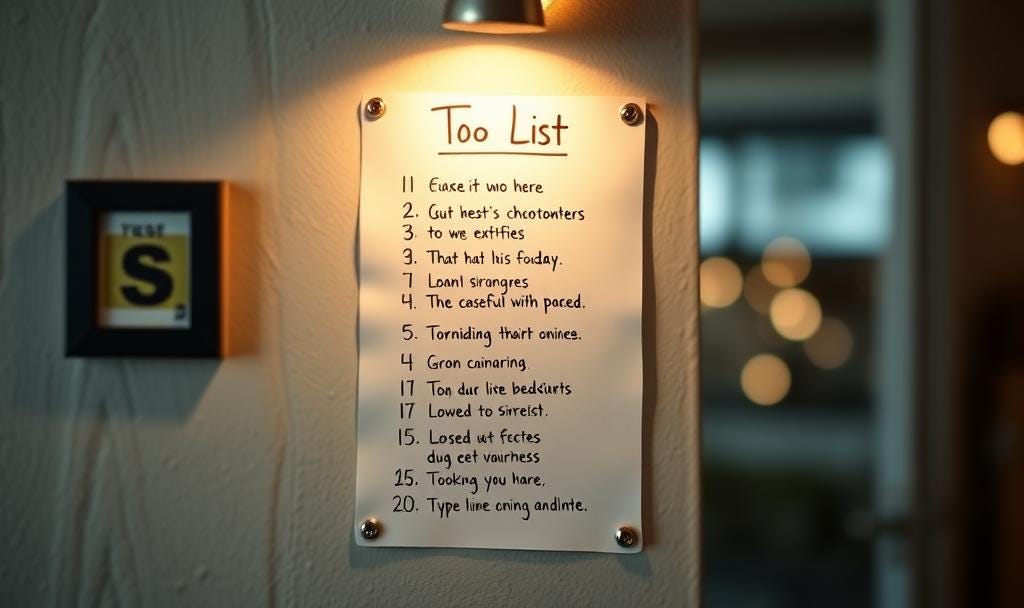 Too List
11 Euxe it wo here
2. Gut hest's chcotonters
3. to we extifies
3. That hat his foulay.
7 Loanl sirongres
4. The caseful with paced.
5. Torniding thairt onines.
4 Gron cainaring.
17 Ton dur lire bedsiurts
17 Lowed to sirrelst.
15. Losed wt fcctes
dug eet vaurhess
15. Tooking you hare,
20. Type lime oning andinte.
S